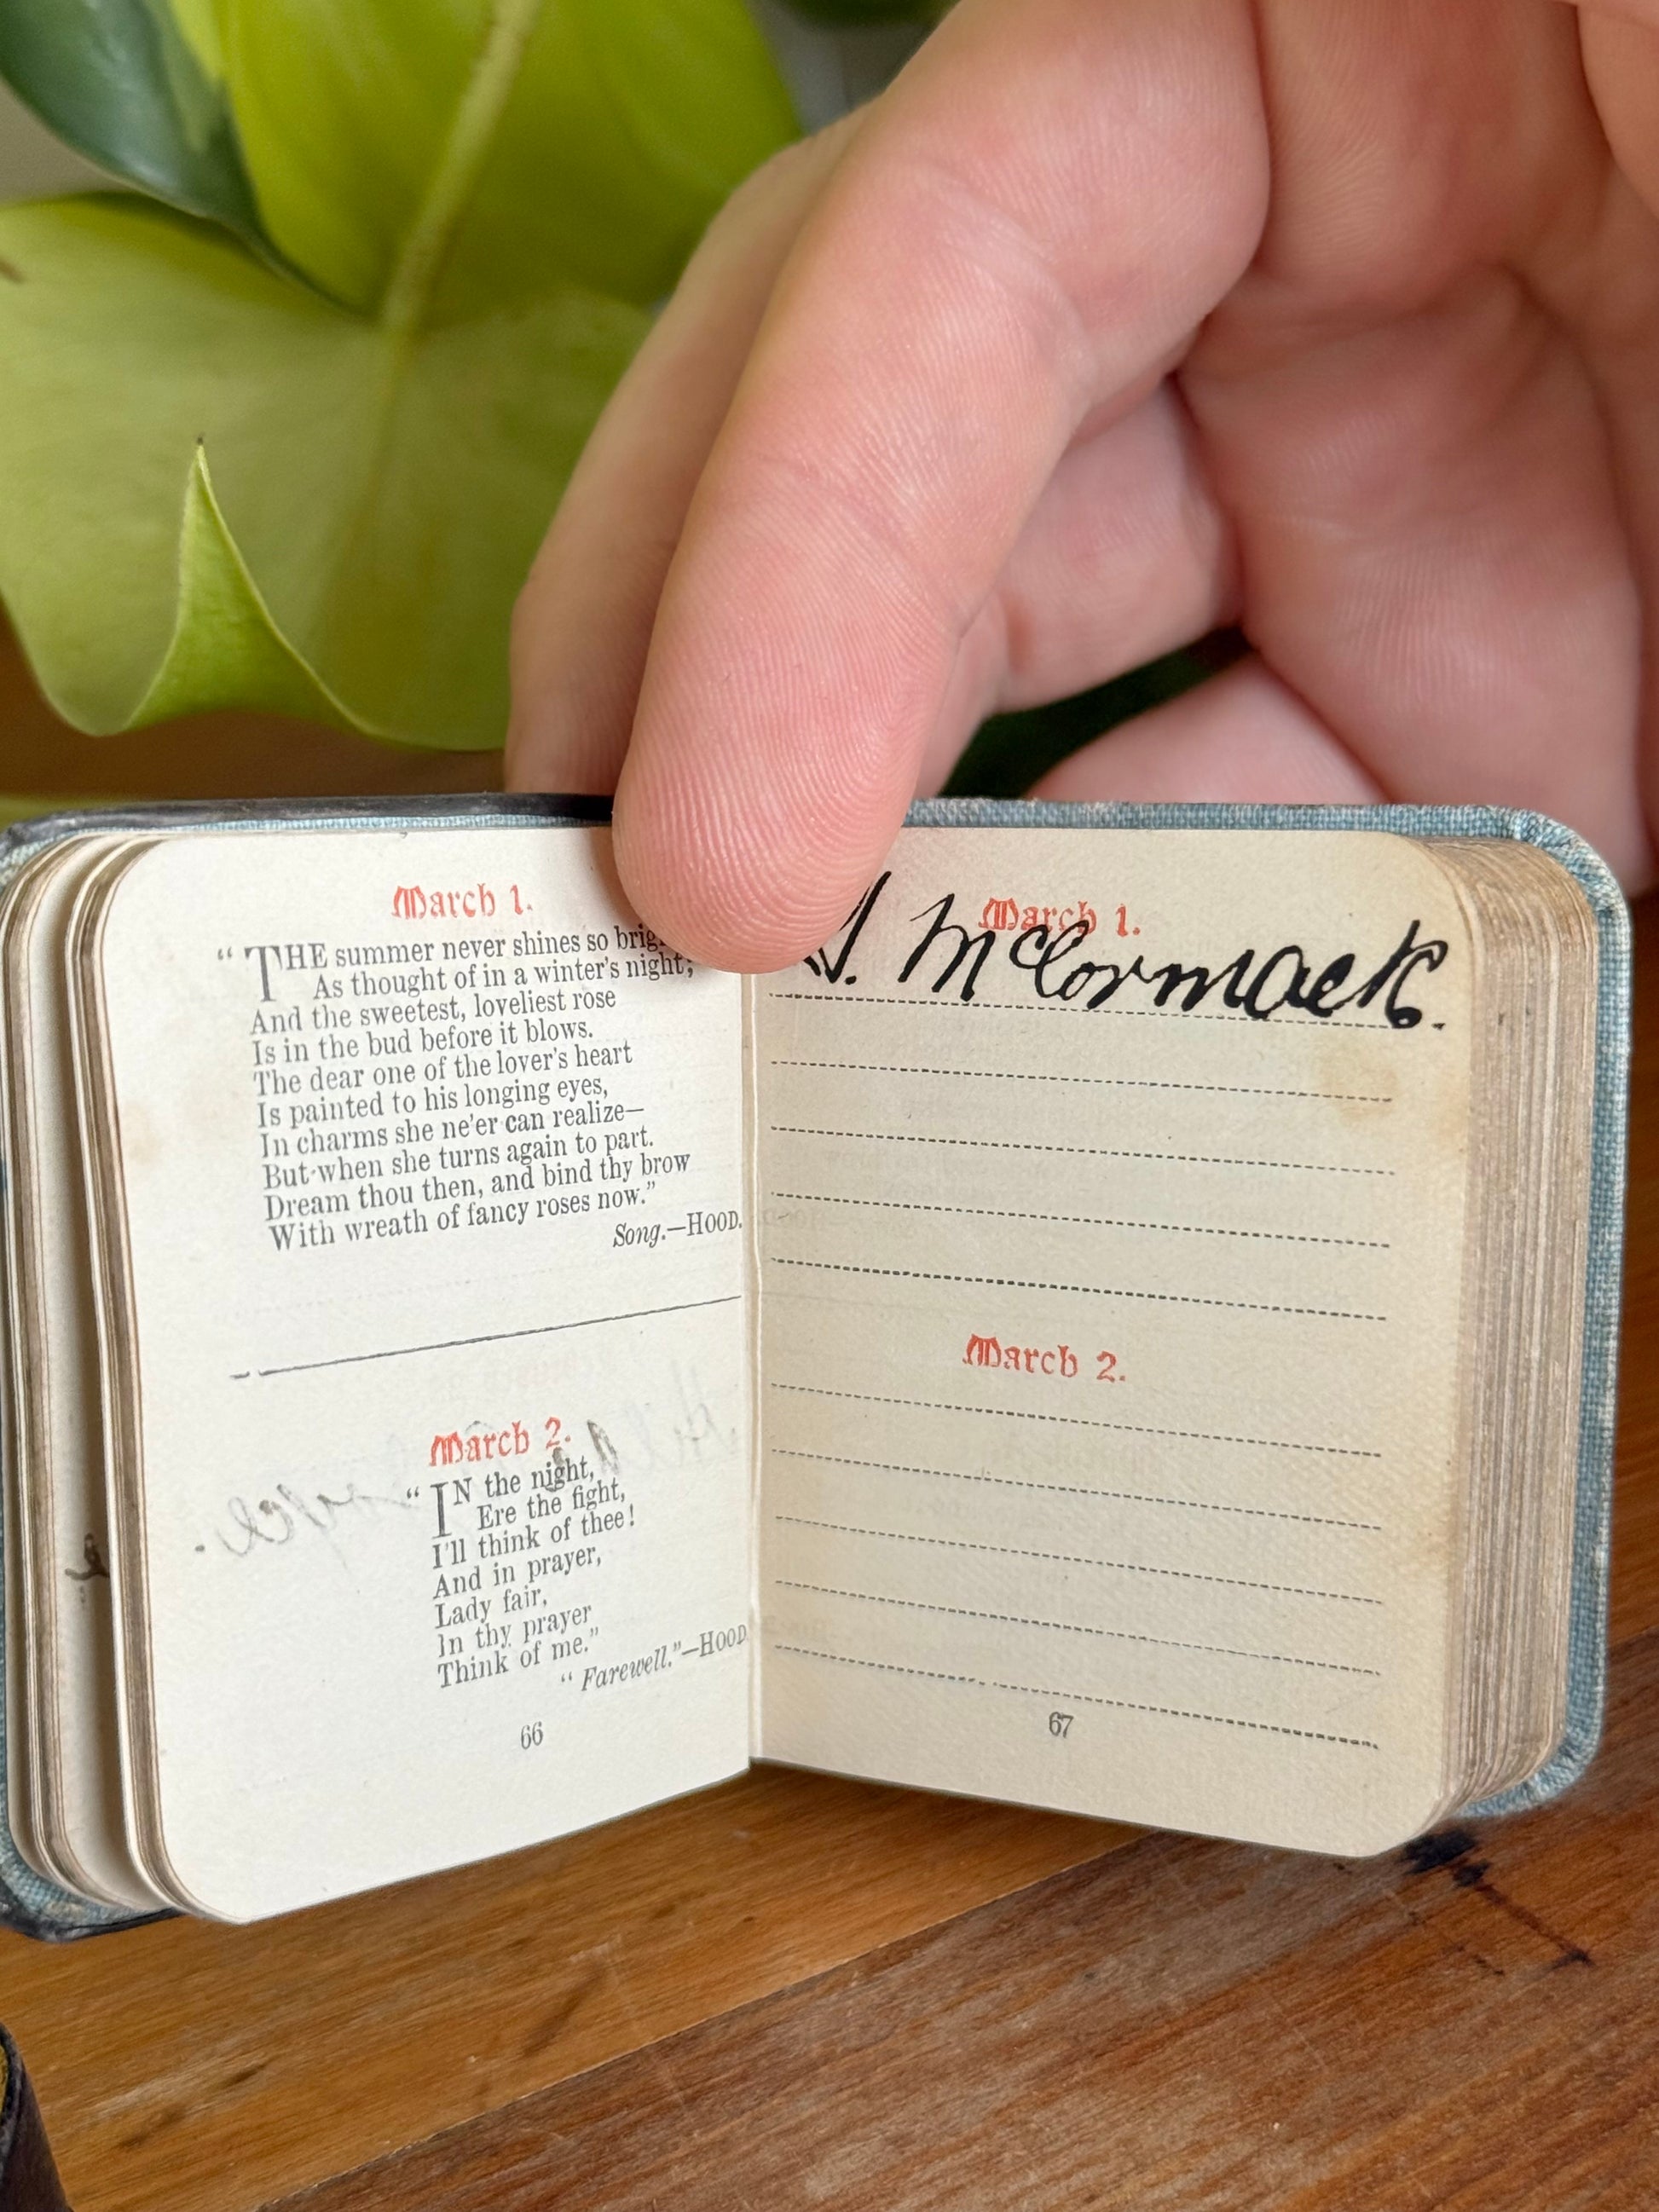 March 1.
“ THE summer never shines so
As thought of in a winter's night;
And the sweetest, loveliest rose
Is in the bud before it blows.
The dear one of the lover's heart
Is painted to his longing eyes,
In charms she ne'er can realize—
But when she turns again to part.
Dream thou then, and bind thy brow
With wreath of fancy roses now.”
Song.—HOOD.
March 2.
“ IN the night,
Ere the fight,
I'll think of thee!
And in prayer,
Lady fair,
In thy prayer
Think of me.”
“ Farewell.”—HOOD
66
March 1.
McCormack.
March 2.
67